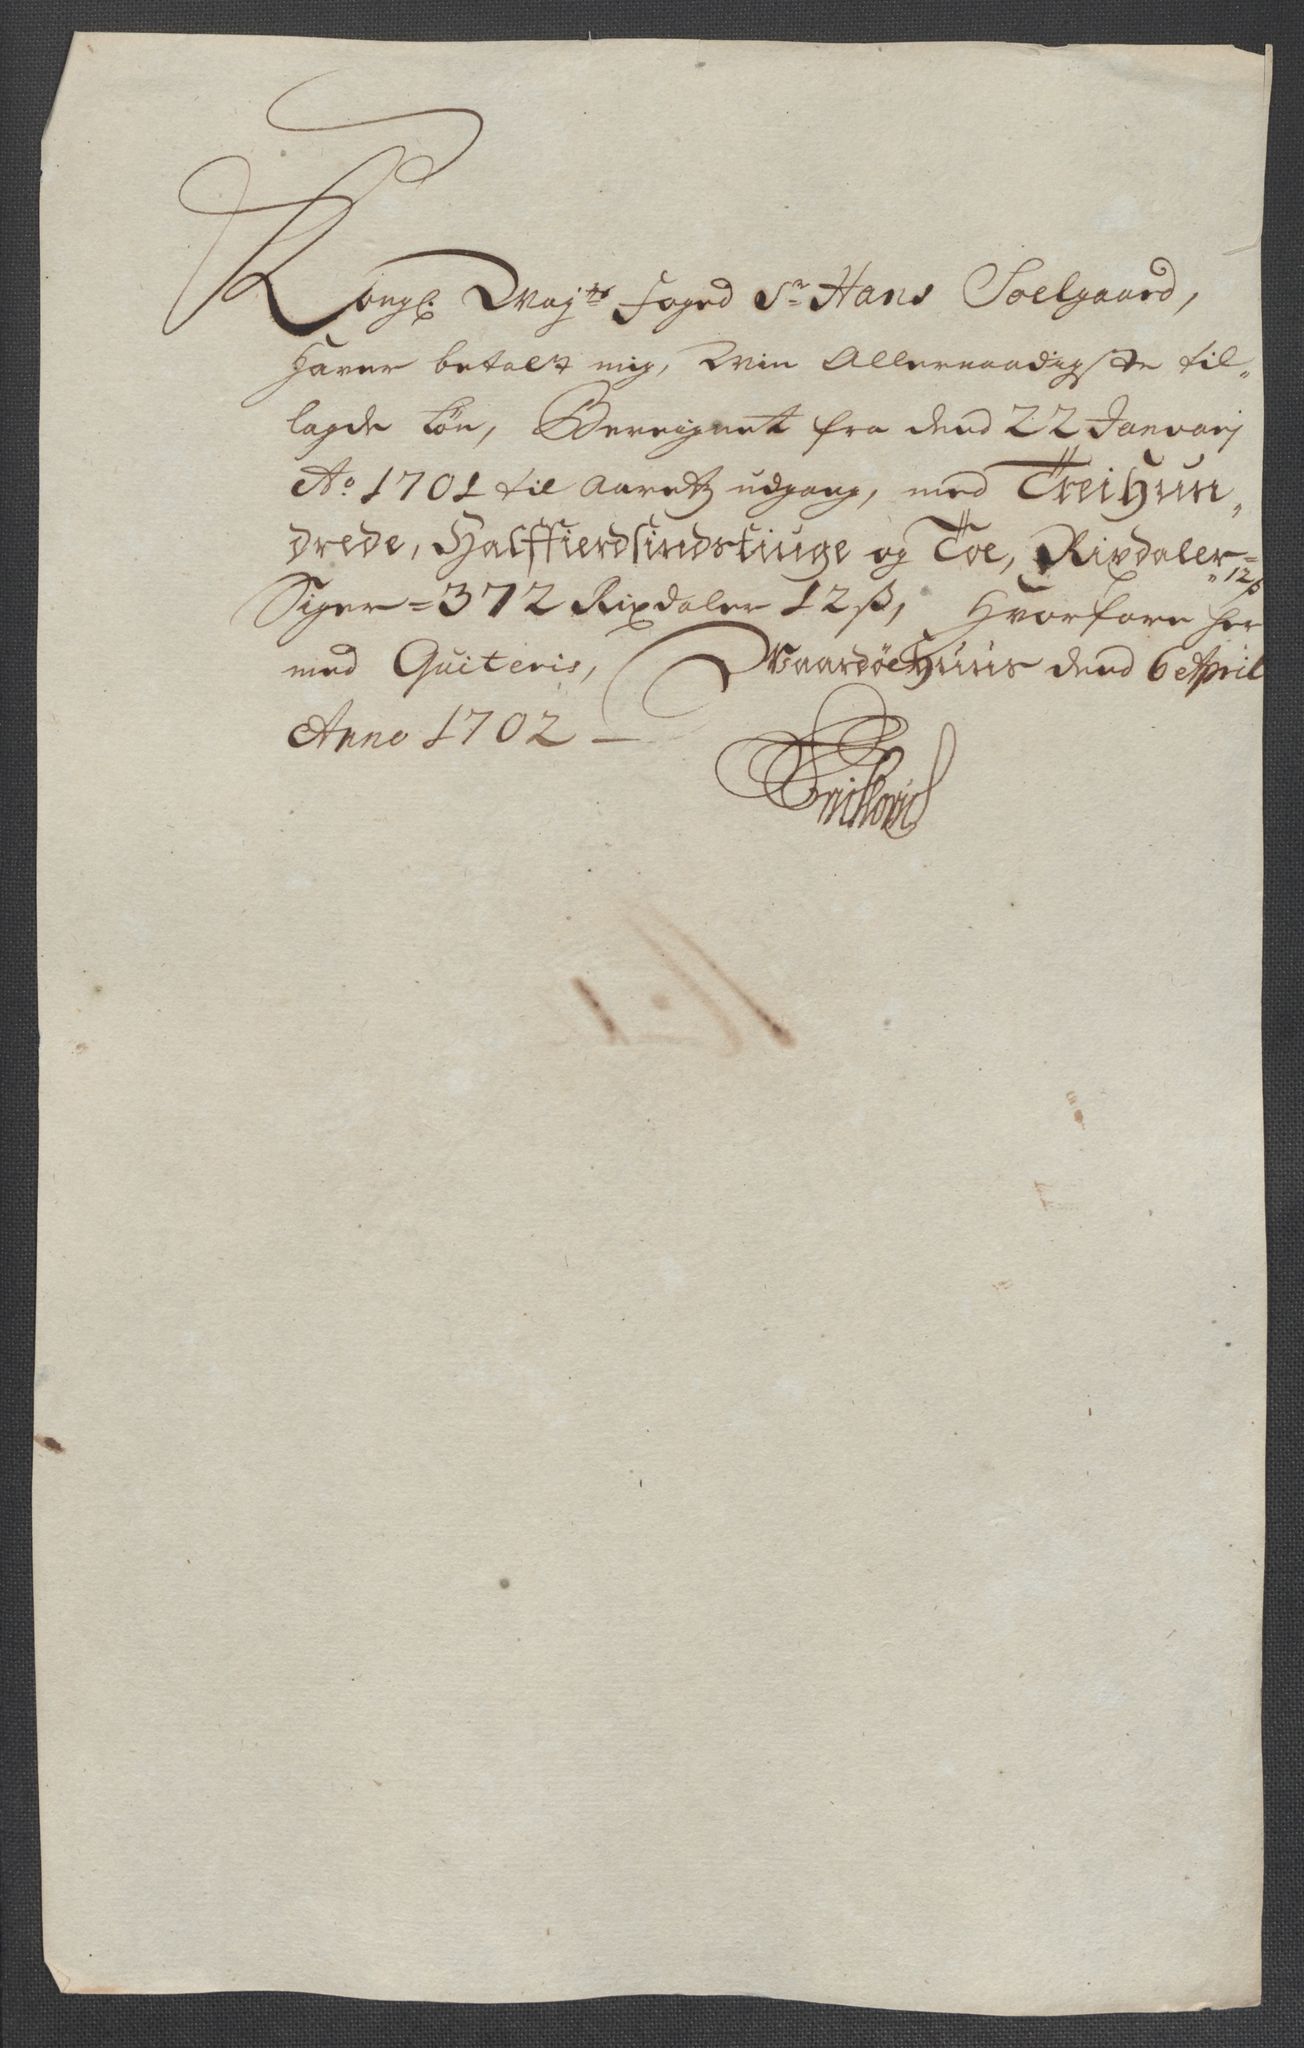 Kongl. Mayts foged Sr Hans Soelgaard,
Hafver betalt mig, Min Allernaadigste til-
lagde Løn, Bereignet fra dend 22 Januarj
Ao 1701 til Aaretz udgang, med Trei Hun-
drede, Halffierdsindstiuge og Toe, Rixdaler= 12ß
Siger=372 Rixdaler 12ß, Hvorfore her
med Quiteris, Waardøehuus dend 6 April
Anno 1702 –